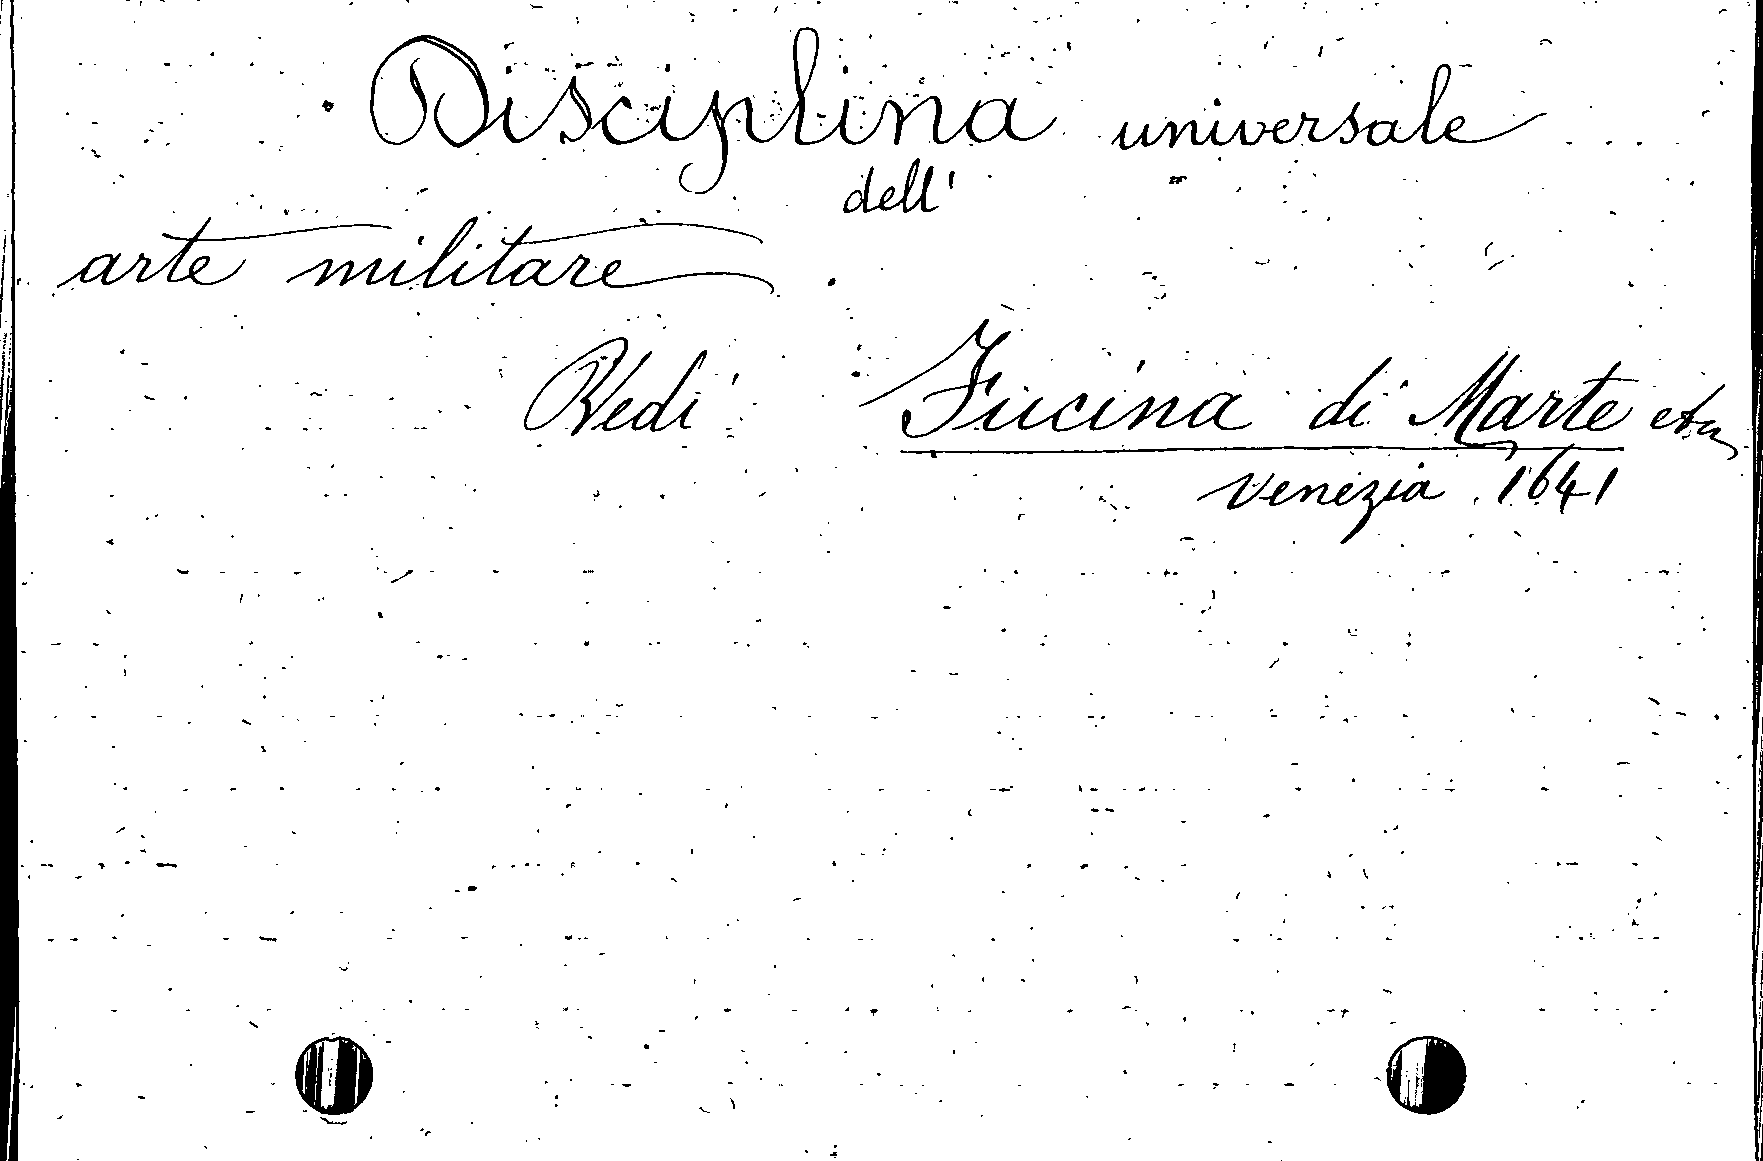 Disciplina universale
dell'
arte militare
Vedi Fucina di Marte etc
Venezia 1641